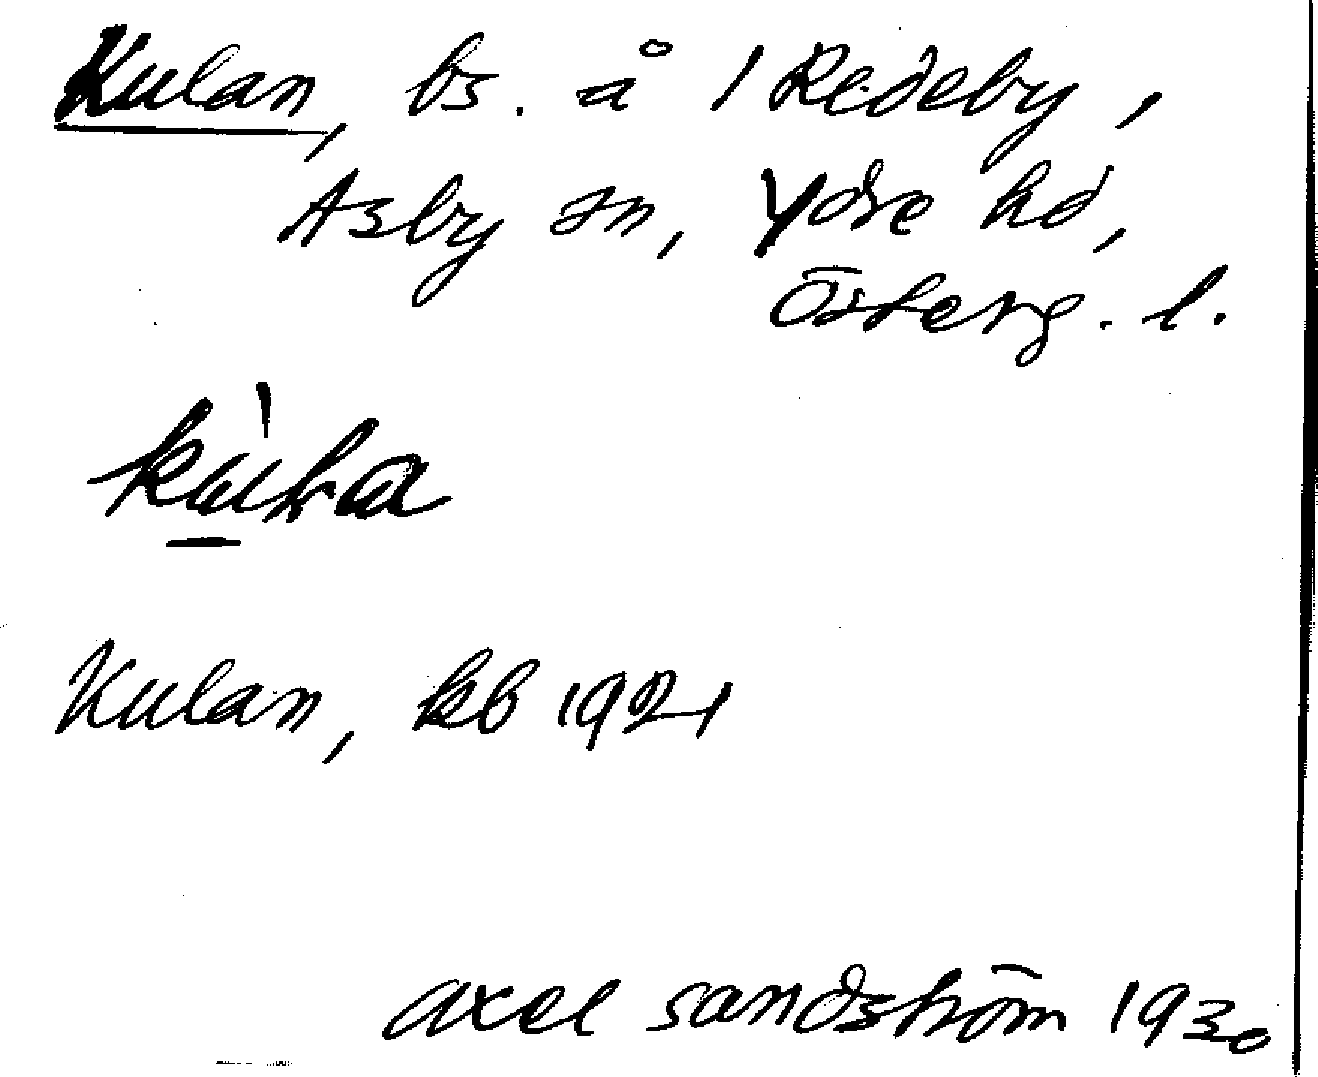 Kulan, bs. å 1 Redeby,
Asby sn, Ydre hd,
Österg. l.
Kulan, kb 1921
Axel Sandström 1930